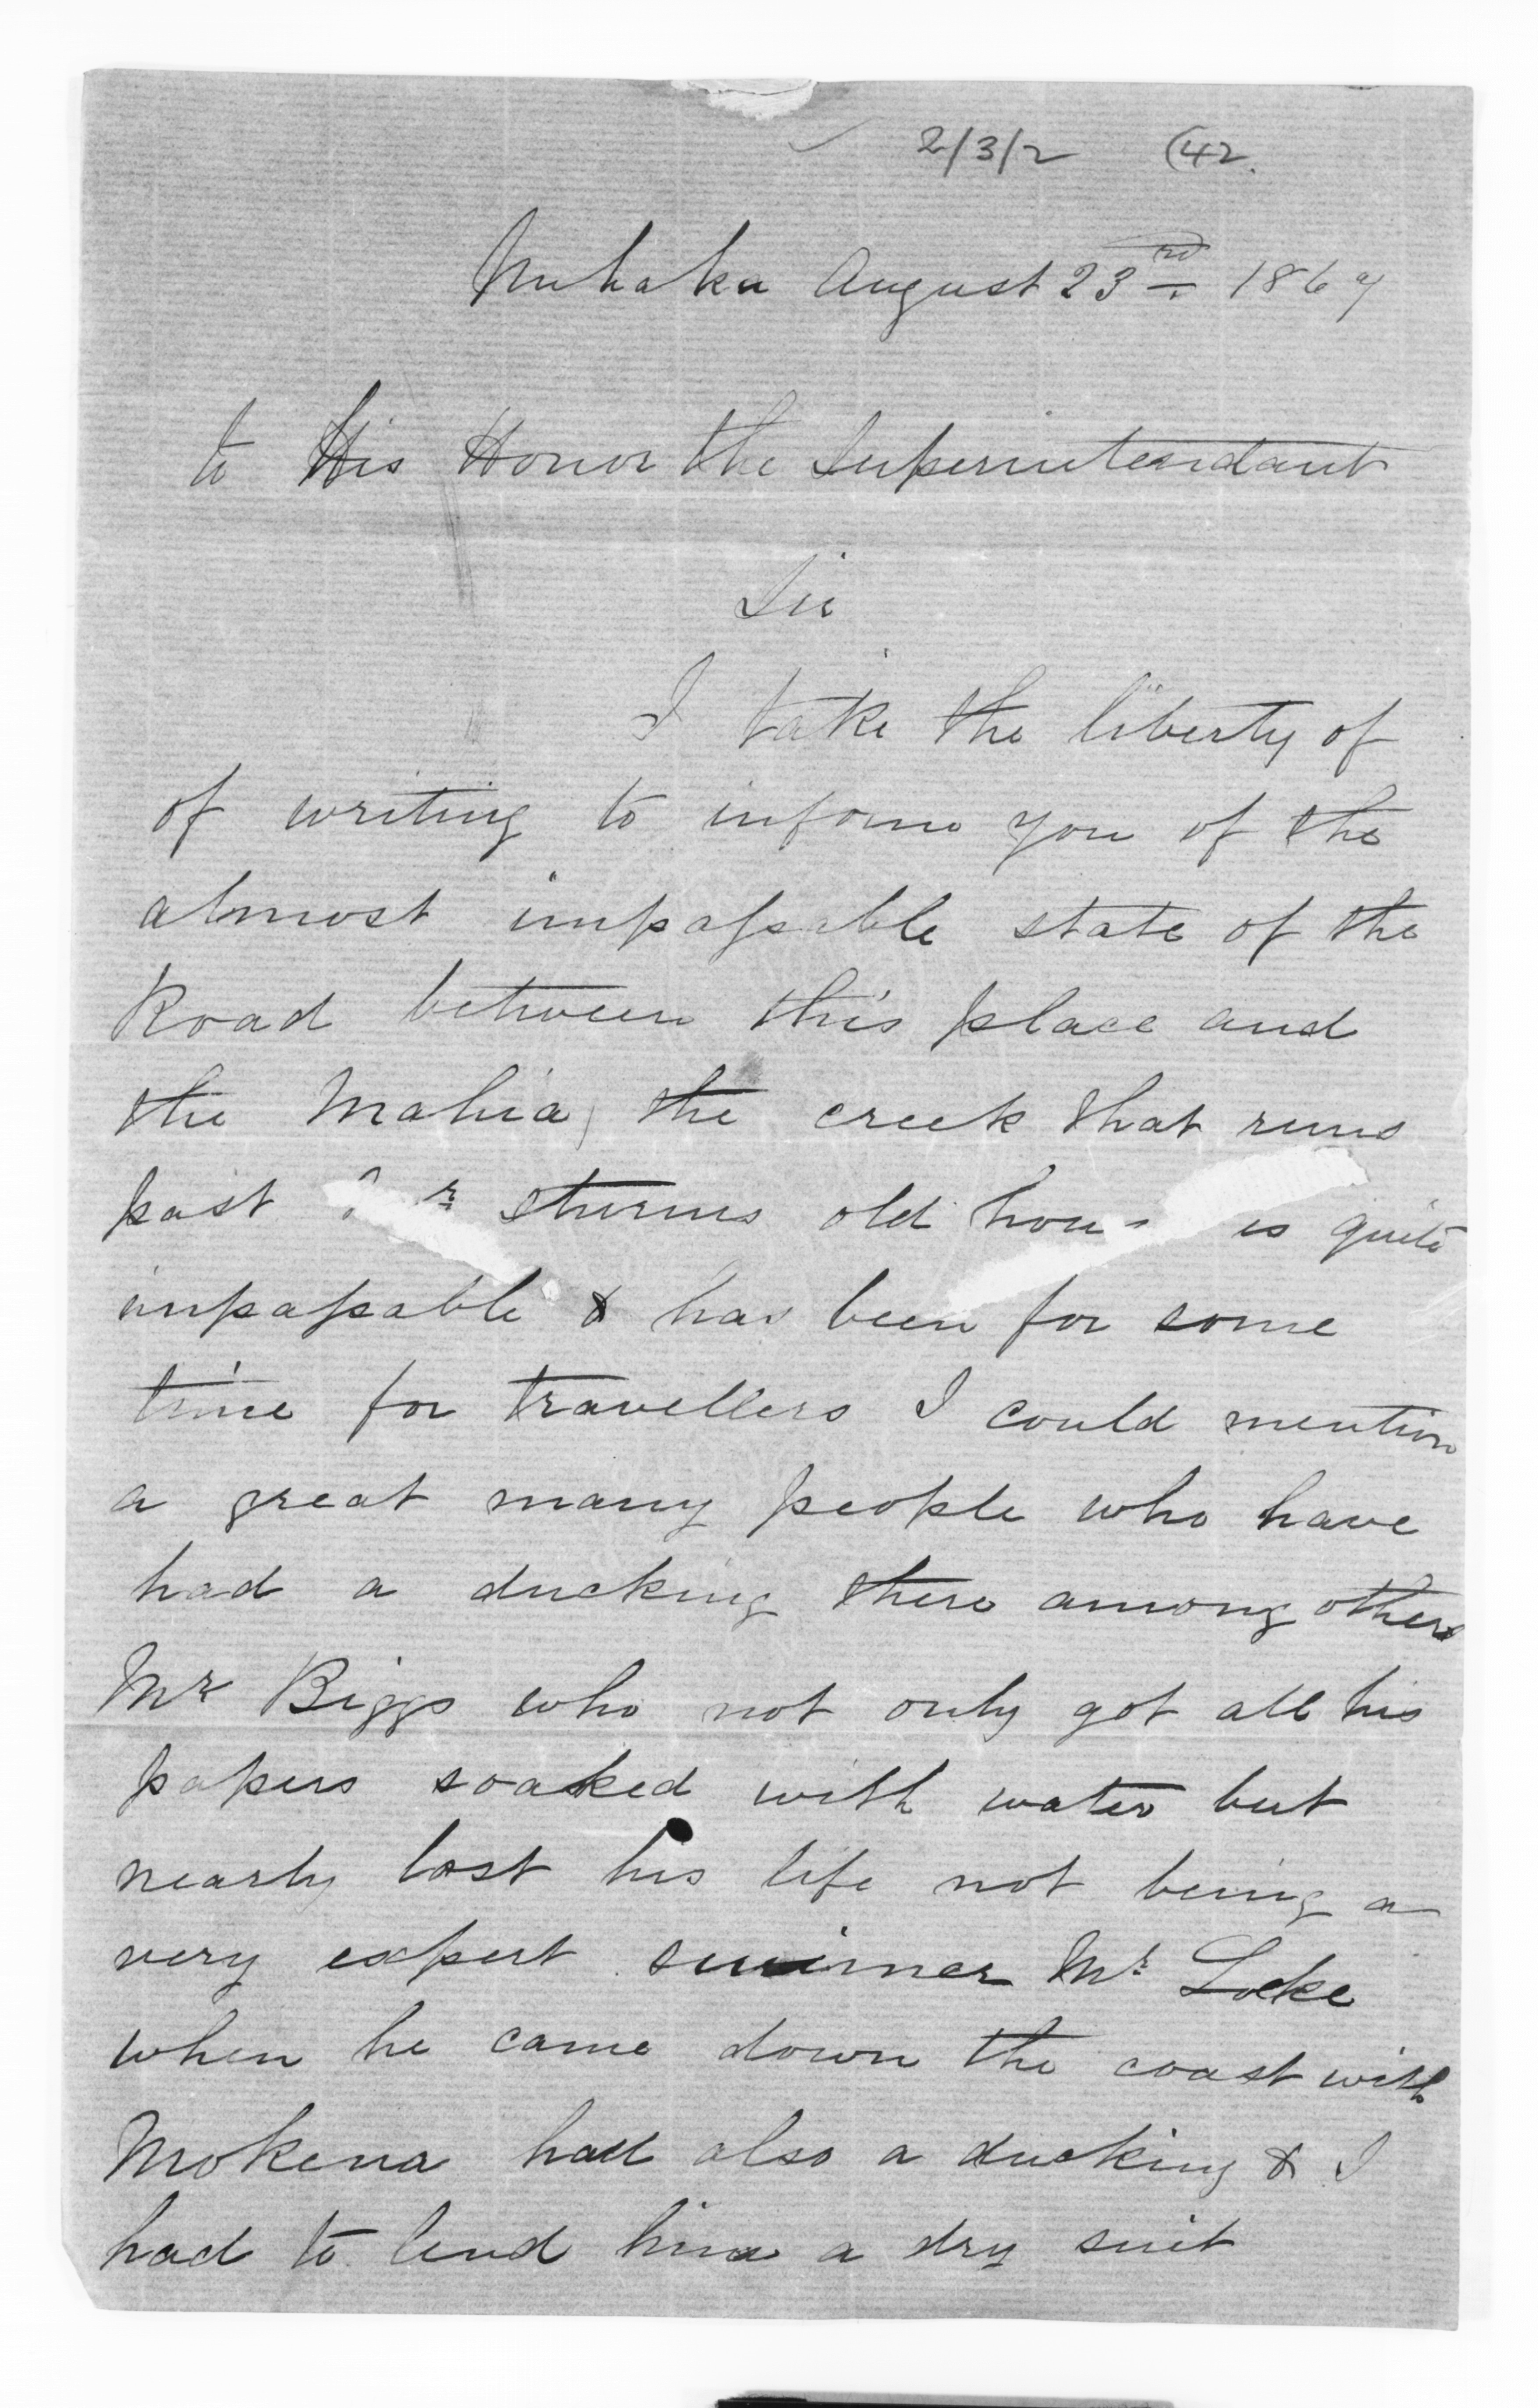 2/3/2 (42.
Nuhaka August 23rd 1867
to His Honor the Superintendant
Sir
I take the liberty of
of writing to inform you of the
almost impassable state of the
Road between this place and
the Mahia, the creek that runs
past Sturms old is quite
impassable & has been for some
time for travellers I could mention
a great many people who have
had a ducking there among others
Mr Biggs who not only got all his
papers soaked with water but
nearly lost his life not being a
very expert swimer Mr Locke
when he came down the coast with
Mokena had also a ducking & I
had to lend him a dry suit